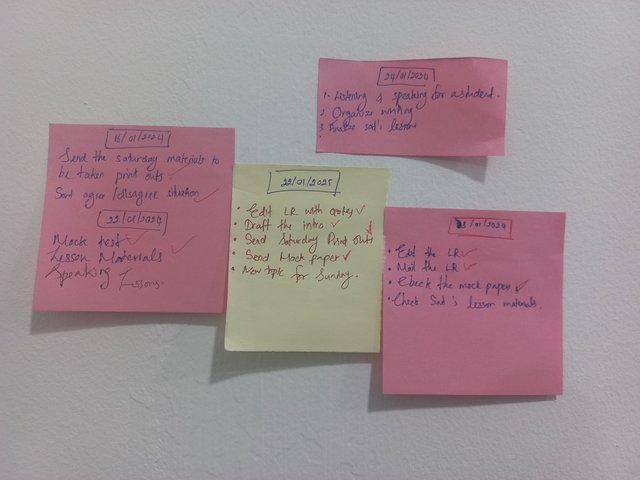 24/01/2024
1. Listening & speaking for a student.
2. Organize writing
3. Finalize Sat's lessons
16/01/2024
Send the Saturday materials to
be taken print outs
Sent agree/disagree situation
22/01/2024
Mock test
Lesson Materials
Speaking Lessons.
22/01/2025
• Edit LR with notes
• Draft the intro
• Send Saturday Print outs
• Send Mock paper
• New topic for Sunday.
23/01/2024
• Edit the LR
• Mail the LR
• Check the mock paper
• Check Sat's lesson materials.